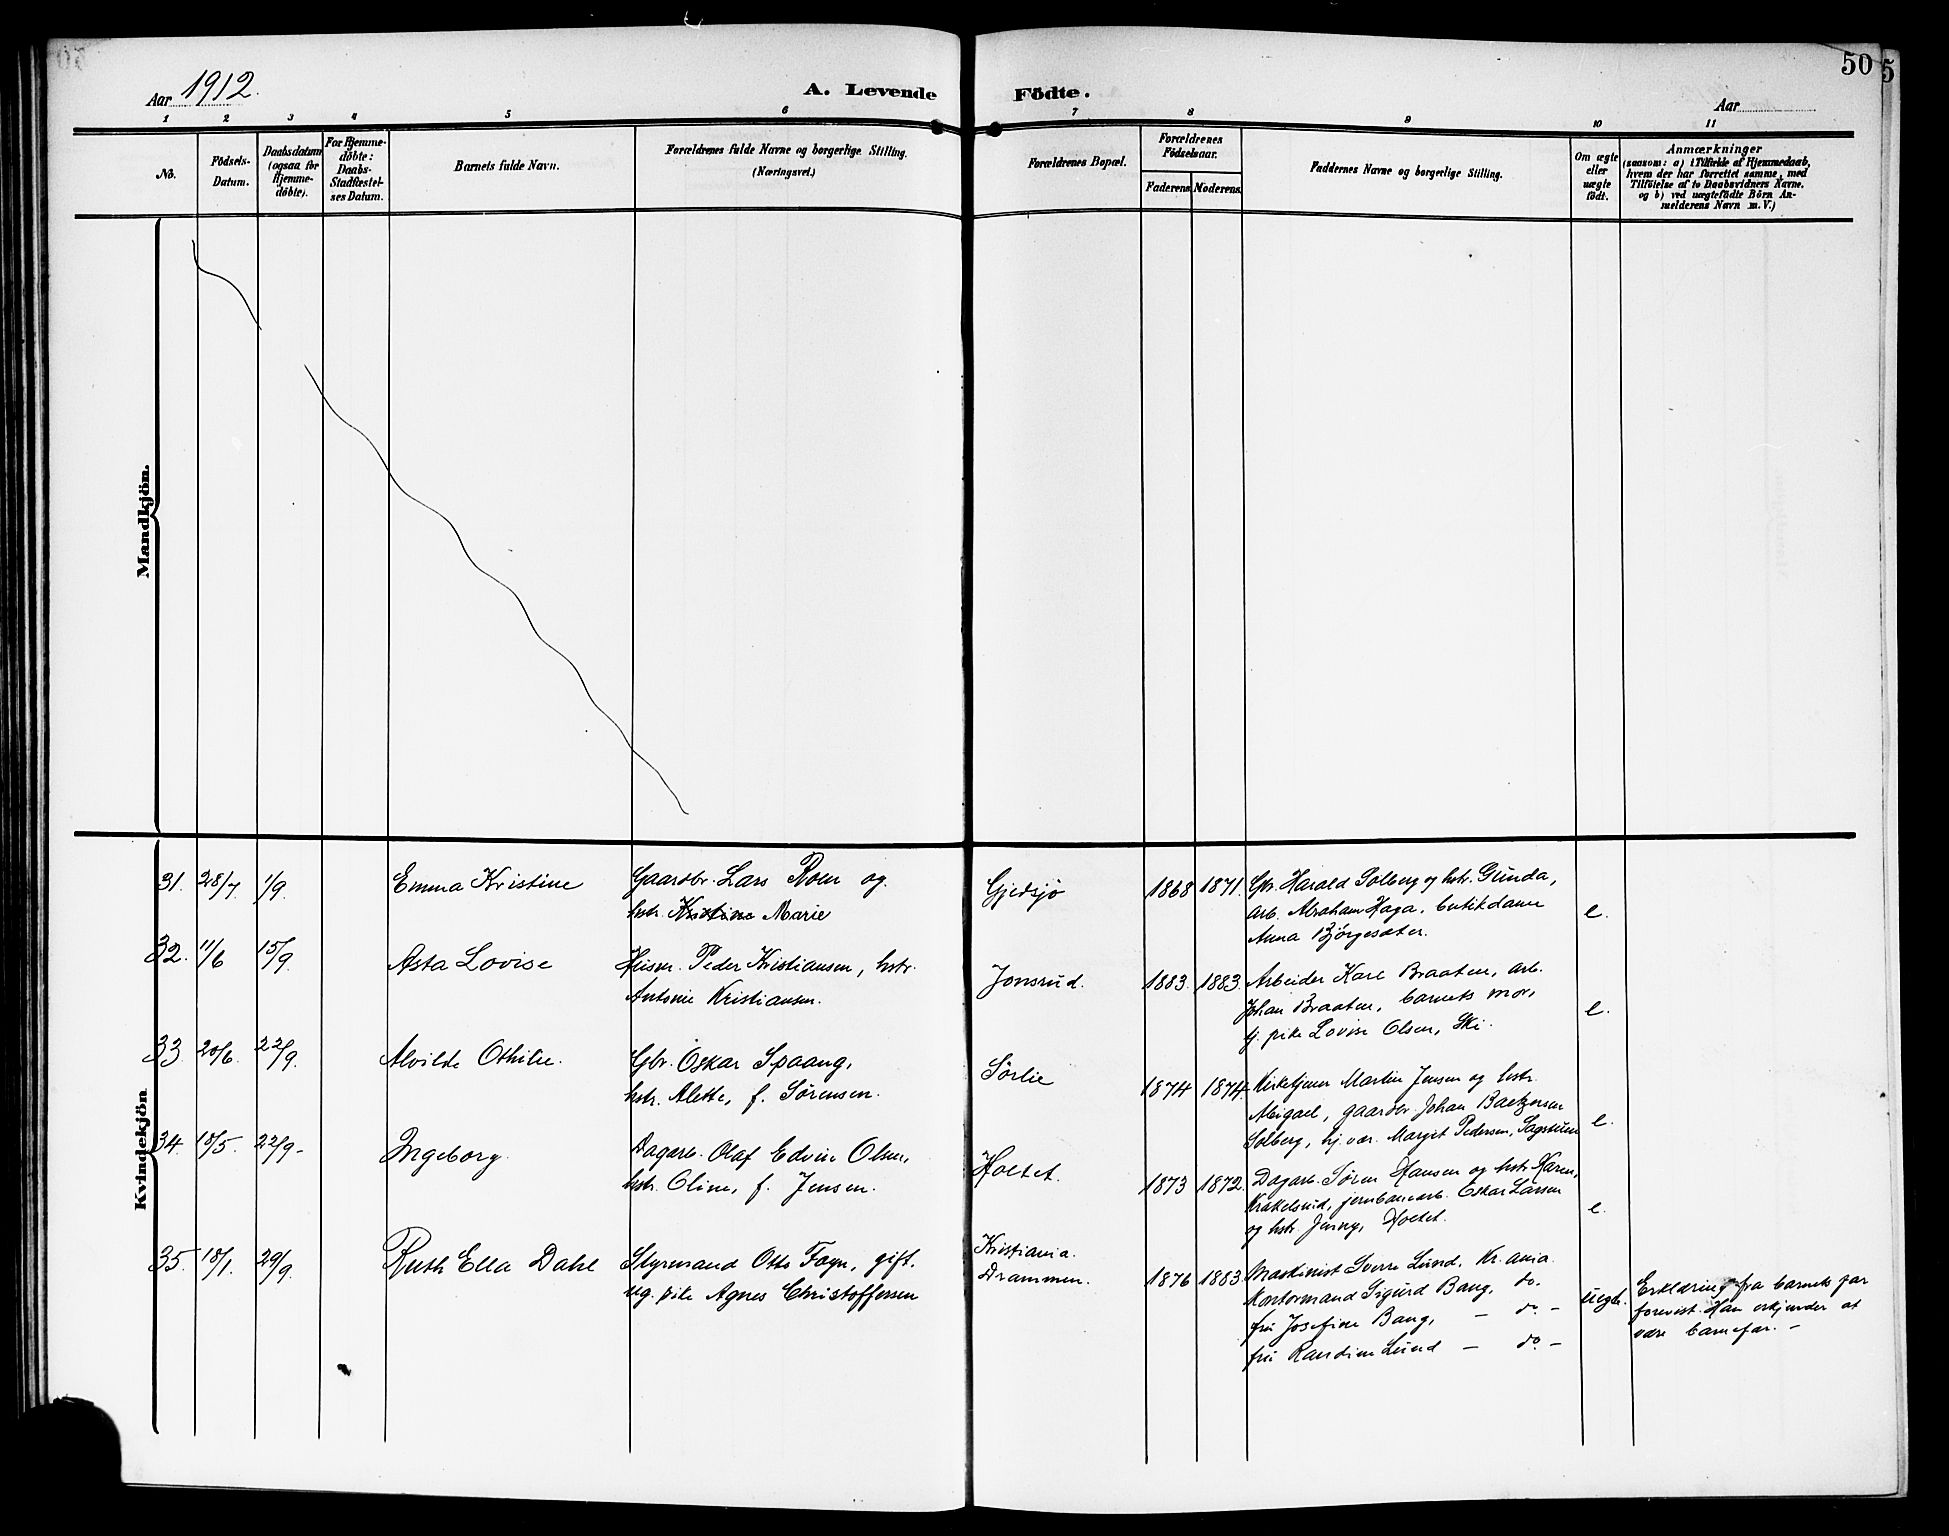 Aar 1912.
A. Levende Födte.
Aar
50
5
1 2 3 4 5 6 7 8 9 10 11
No.
Födsels-
Datum.
Daabsdatum
(ogsaa for
Hjemme-
döbte).
For Hjemme-
döbte:
Daabs-
Stadfæstel-
ses Datum.
Barnets fulde Navn.
Forældrenes fulde Navne og borgerlige Stilling.
(Næringsvei.)
Forældrenes Bopæl.
Forældrenes
Födselsaar.
Faderens. Moderens.
Faddernes Navne og borgerlige Stilling.
Om ægte
eller
uægte
födt.
Anmærkninger
(saasom: a) i Tilfælde af Hjemmedaab,
hvem der har forrettet samme, med
Tilföielse af to Daabsvidners Navne,
og b) ved uægtefödte Börn An-
melderens Navn m. V.)
Mandkjön.
Kvindekjön
31. 28/7 1/9. Emma Kristine
Gaardbr. Lars Roen og
hstr. Kristine Marie
Gjedsjö
1868 1871.
Gbr. Harald Solberg og hstr. Gunda,
arb. Abraham Haga, butikdame
Anna Björgesæter.
e.
32. 11/6 15/9. Asta Lovise
Husm. Peder Kristiansen, hstr.
Antonie Kristiansen.
Jonsrud.
1883. 1883.
Arbeider Karl Braaten, arb.
Johan Braaten, barnets mor,
tj. pike Lovise Olsen, Ski.
e.
33. 20/6. 22/9. Alvilde Othilie.
Gbr. Oskar Spaang,
hstr. Alette, f. Sørensen.
Sørlie
1874 1874.
Kirketjener Martin Jensen og hstr.
Abigael, gaardbr. Johan
Solberg, hj. vær. Margit Pedersen,
e.
34. 18/5. 22/9- Ingeborg.
Dagarb. Olaf Edvin Olsen,
hstr. Oline, f. Jensen.
Holtet.
1873 1872.
Dagarb. Sören Hansen og hstr. Karen,
Krakelsrud, jernbanearb. Oskar Larsen
og hstr. Jenny, Holtet.
e.
35. 18/1. 29/9. Ruth Ella Dahl
Styrmand Otto Fogn, gift.
ug. pike Agnes Christoffersen
Kristiania.
Drammen.
1876 1883.
Maskinist Sverre Lund, Kr.ania.
Kontormand Sigurd Bang, do.
fru Josefine Bang, - do. -
fru Randine Lund - do -
uegte.
Erklæring fra barnets far
forevist. Han erkjender at
være barnefar. -